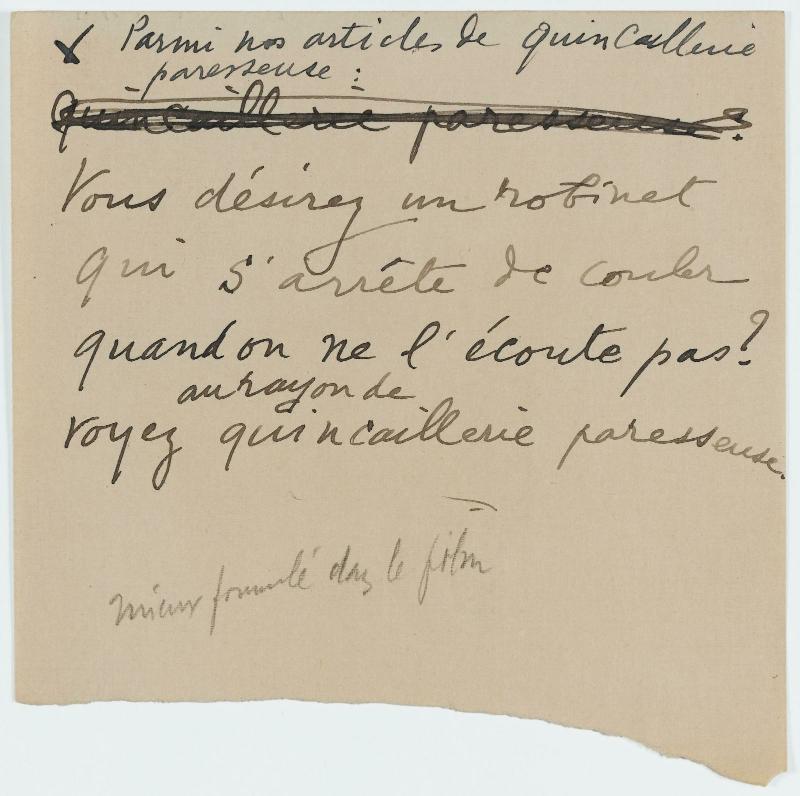 Parmi nos articles de quincaillerie
paresseuse :
Quincaillerie paresseuse :
Vous désirez un robinet
qui s'arrête de couler
quand on ne l'écoute pas?
au rayon de
voyez quincaillerie paresseuse.
mieux formulé dans le film